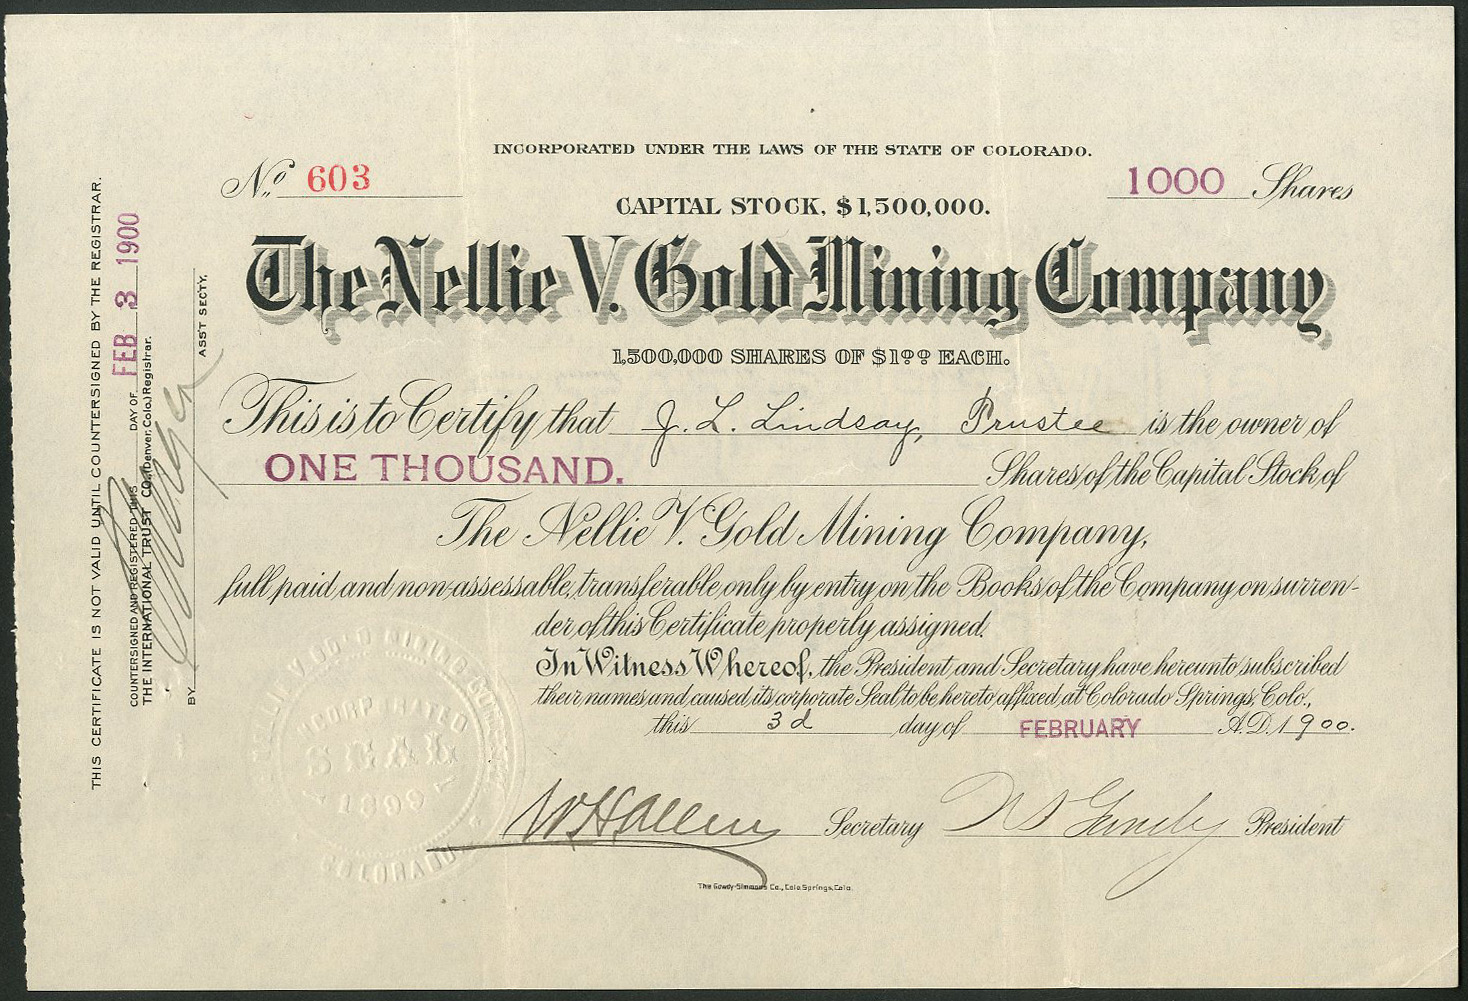 INCORPORATED UNDER THE LAWS OF THE STATE OF COLORADO.
No. 603
1000 Shares
CAPITAL STOCK, $1,500,000.
The Nellie V. Gold Mining Company
1,500,000 SHARES OF $1.00 EACH.
This is to Certify that J. L. Lindsay, Trustee is the owner of
ONE THOUSAND. Shares of the Capital Stock of
The Nellie V. Gold Mining Company,
full paid and non-assessable, transferable only by entry on the Books of the Company on surren-
der of this Certificate properly assigned.
In Witness Whereof, the President and Secretary have hereunto subscribed
their names and caused its corporate Seal to be hereto affixed at Colorado Springs, Colo.,
this 3d day of FEBRUARY A.D. 1900.
Secretary
President
The Gowdy-Simmons Co., Colo. Springs, Colo.
THIS CERTIFICATE IS NOT VALID UNTIL COUNTERSIGNED BY THE REGISTRAR.
COUNTERSIGNED AND REGISTERED THIS DAY OF FEB 3 1900
THE INTERNATIONAL TRUST CO., (Denver, Colo.) Registrar.
BY ASS'T SECTY.
NELLIE V. GOLD MINING COMPANY
INCORPORATED
SEAL
1899
COLORADO